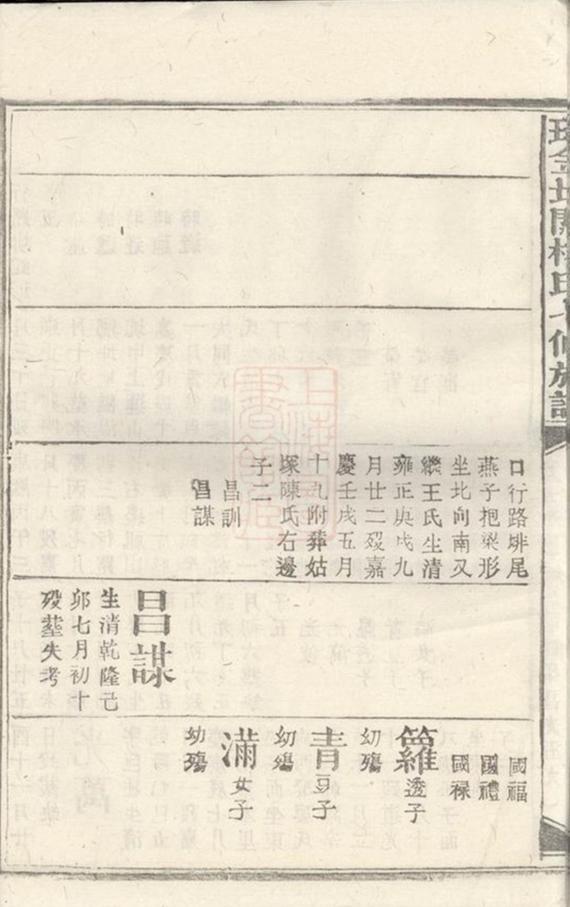 口行路排尾
燕子抱梁形
坐北向南又
繼王氏生清
雍正庚戌九
月廿二歿嘉
慶壬戌五月
十九附葬姑
塚陳氏右邊
子二
昌訓
昌謀
昌謀
生清乾隆己
卯七月初十
歿塟失考
國福
國禮
國祿
籮透子
幼殤
青豆子
幼殤
滿女子
幼殤